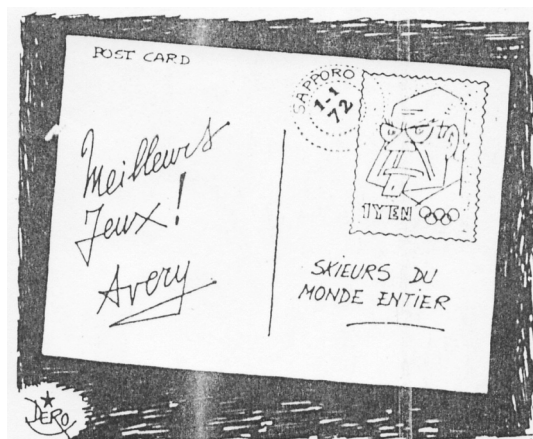 POST CARD
SAPPORO
1-1
72
1 YEN
Meilleurs
Jeux!
Avery
SKIEURS DU
MONDE ENTIER
DERO